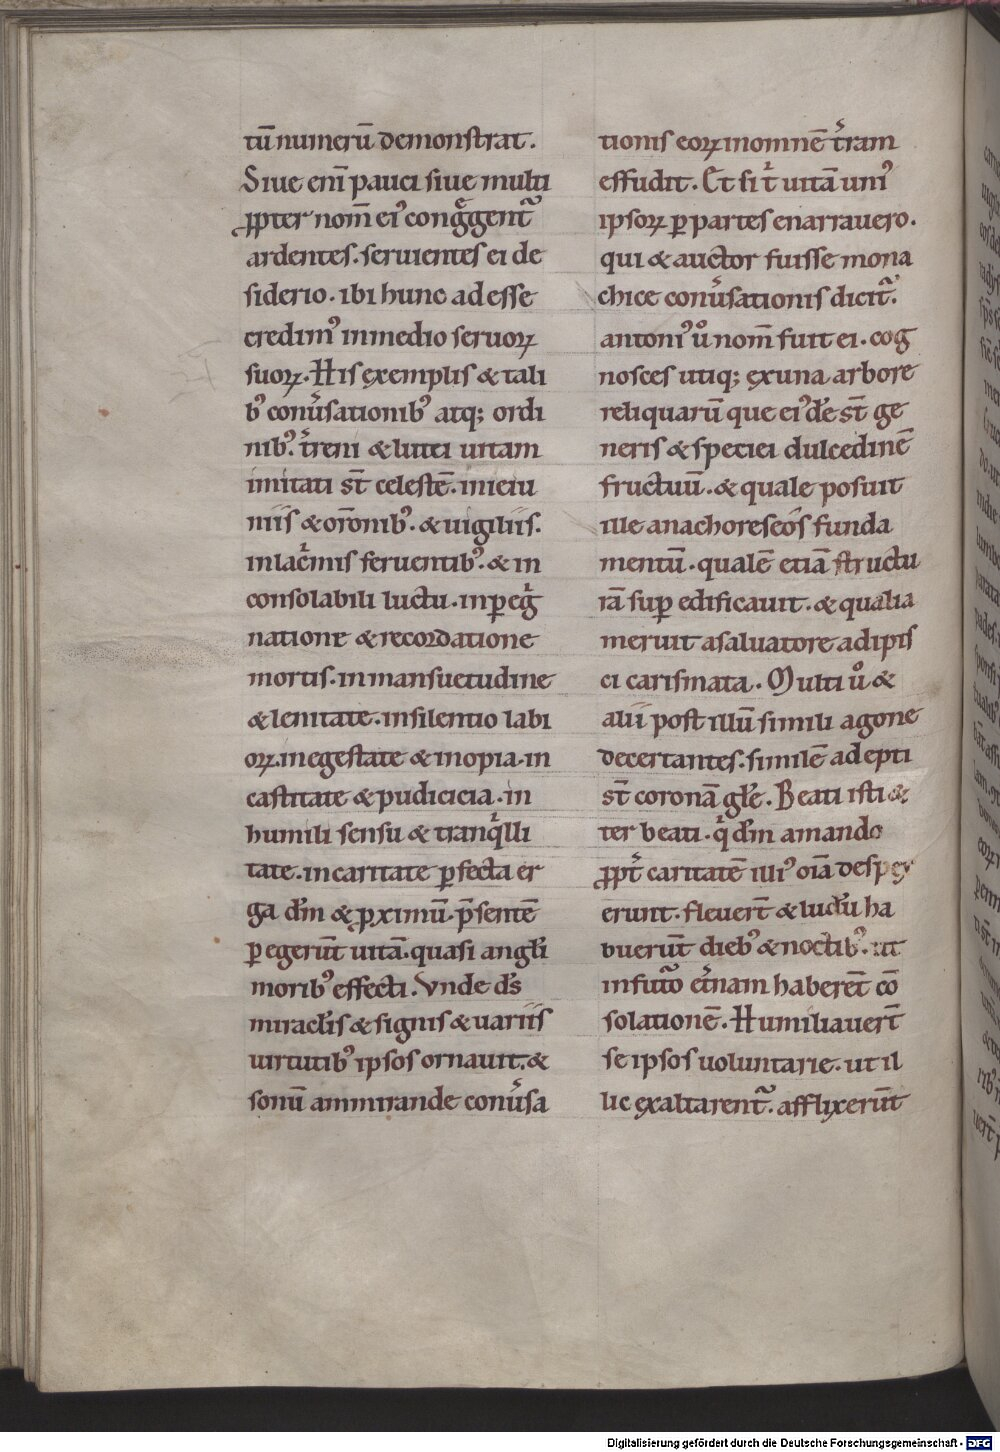 tū numerū demonstrat.
Siue eni̅ pauci siue multi
ꝓpter nom̅ eiꝰ cong̅gent᷑
ardentes. seruientes ei de
siderio. ibi hunc adesse
credimꝰ in medio seruoꝝ
suoꝝ. His exemplis & tali
bꝰ conu̕sationibꝰ atq; ordi
nibꝰ. t̕reni & lutei uitam
imitati st̅ celestē. in ieiu
niis & or̅onibꝰ. & uigiliis.
in lac̕mis feruentibꝰ. & in
consolabili luctu. in ꝑeg̕
natione & recordatione
mortis. in mansuetudine
& lenitate. in silentio labi
oꝝ. in egestate & inopia. in
castitate & pudicicia. in
humili sensu & tranq̕lli
tate. in caritate ꝑfecta er
ga dm̅ & ꝓximū. p̅sentē
ꝑegerūt uitā. quasi angłi
moribꝰ effecti. Vnde ds̅
miracłis & signis & uariis
uirtutibꝰ ipsos ornauit. &
sonū ammirande conu̕sa
tionis eoꝝ in omnē t̕ram
effudit. Et si t̕ uitā uniꝰ
ipsoꝝ ꝑ partes enarrauero.
qui & auctor fuisse mona
chice conu̕sationis dicit᷑.
antoniꝰ ů nom̅ fuit ei. cog
nosces utiq; ex una arbore
reliquarū que eiꝰdē st̅ ge
neris & speciei dulcedinē
fructuū. & quale posuit
ille anachoreseos funda
mentū. qualē etiā structu
rā suꝑ edificauit. & qualia
meruit a saluatore adipis
ci carismata. Multi ů &
alii post illū simili agone
decertantes. similē adepti
st̅ coronā głe. Beati isti &
ter beati. q̕ dm̅ amando
ꝓpt̕ caritatē illiꝰ oīa despex
erunt. fleuer̅t & luctū ha
buerūt diebꝰ & noctibꝰ. ut
in futuo̅ et̕nam haberēt cō
solationē. Humiliauer̅t
se ipsos uoluntarie. ut il
lic exaltarent᷑. afflixerūt
Digitalisierung gefördert durch die Deutsche Forschungsgemeinschaft - DFG